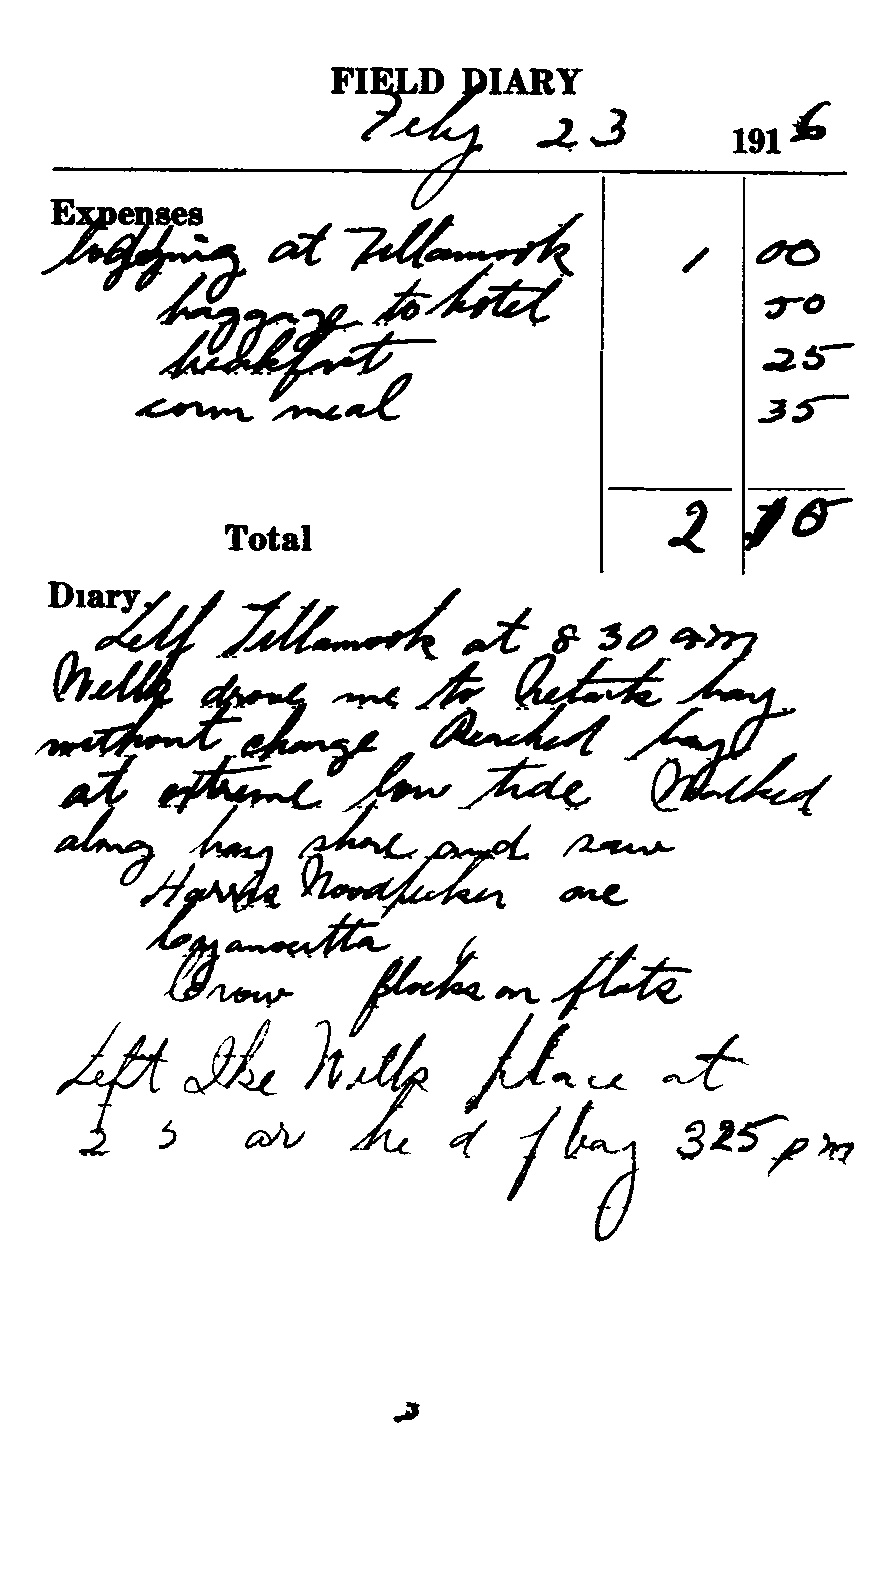 FIELD DIARY
Feby 23 1916
Expenses
lodging at Tillamook 1 00
baggage to hotel 50
breakfast 25
corn meal 35
Total 2 10
Diary.
Left Tillamook at 8 30 am
Wells drove me to Netarts bay
without charge Reached bay
at extreme low tide Walked
along bay shore and saw
Harris Woodpecker one
Crow flocks on flats
Left Ike Wells place at
2 5 ar he d f bay 325 pm